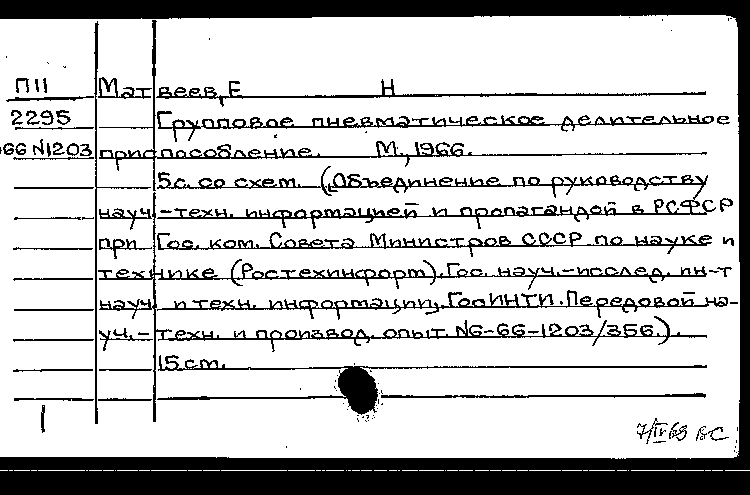 П11 Матвеев, Е Н
2295 Групповое пневматическое делительное
66 N1203 приспособление. М., 1966.
5с. со схем. (Объединение по руководству
науч.-техн. информацией и пропагандой в РСФСР
при Гос. ком. Совета Министров СССР по науке и
технике (Ростехинформ). Гос. науч.-исслед. ин-т
науч. и техн. информации. ГосИНТИ. Передовой на-
уч.- техн. и производ. опыт. N6-66-1203/356.).
15 см.
7/IV 69 ВС